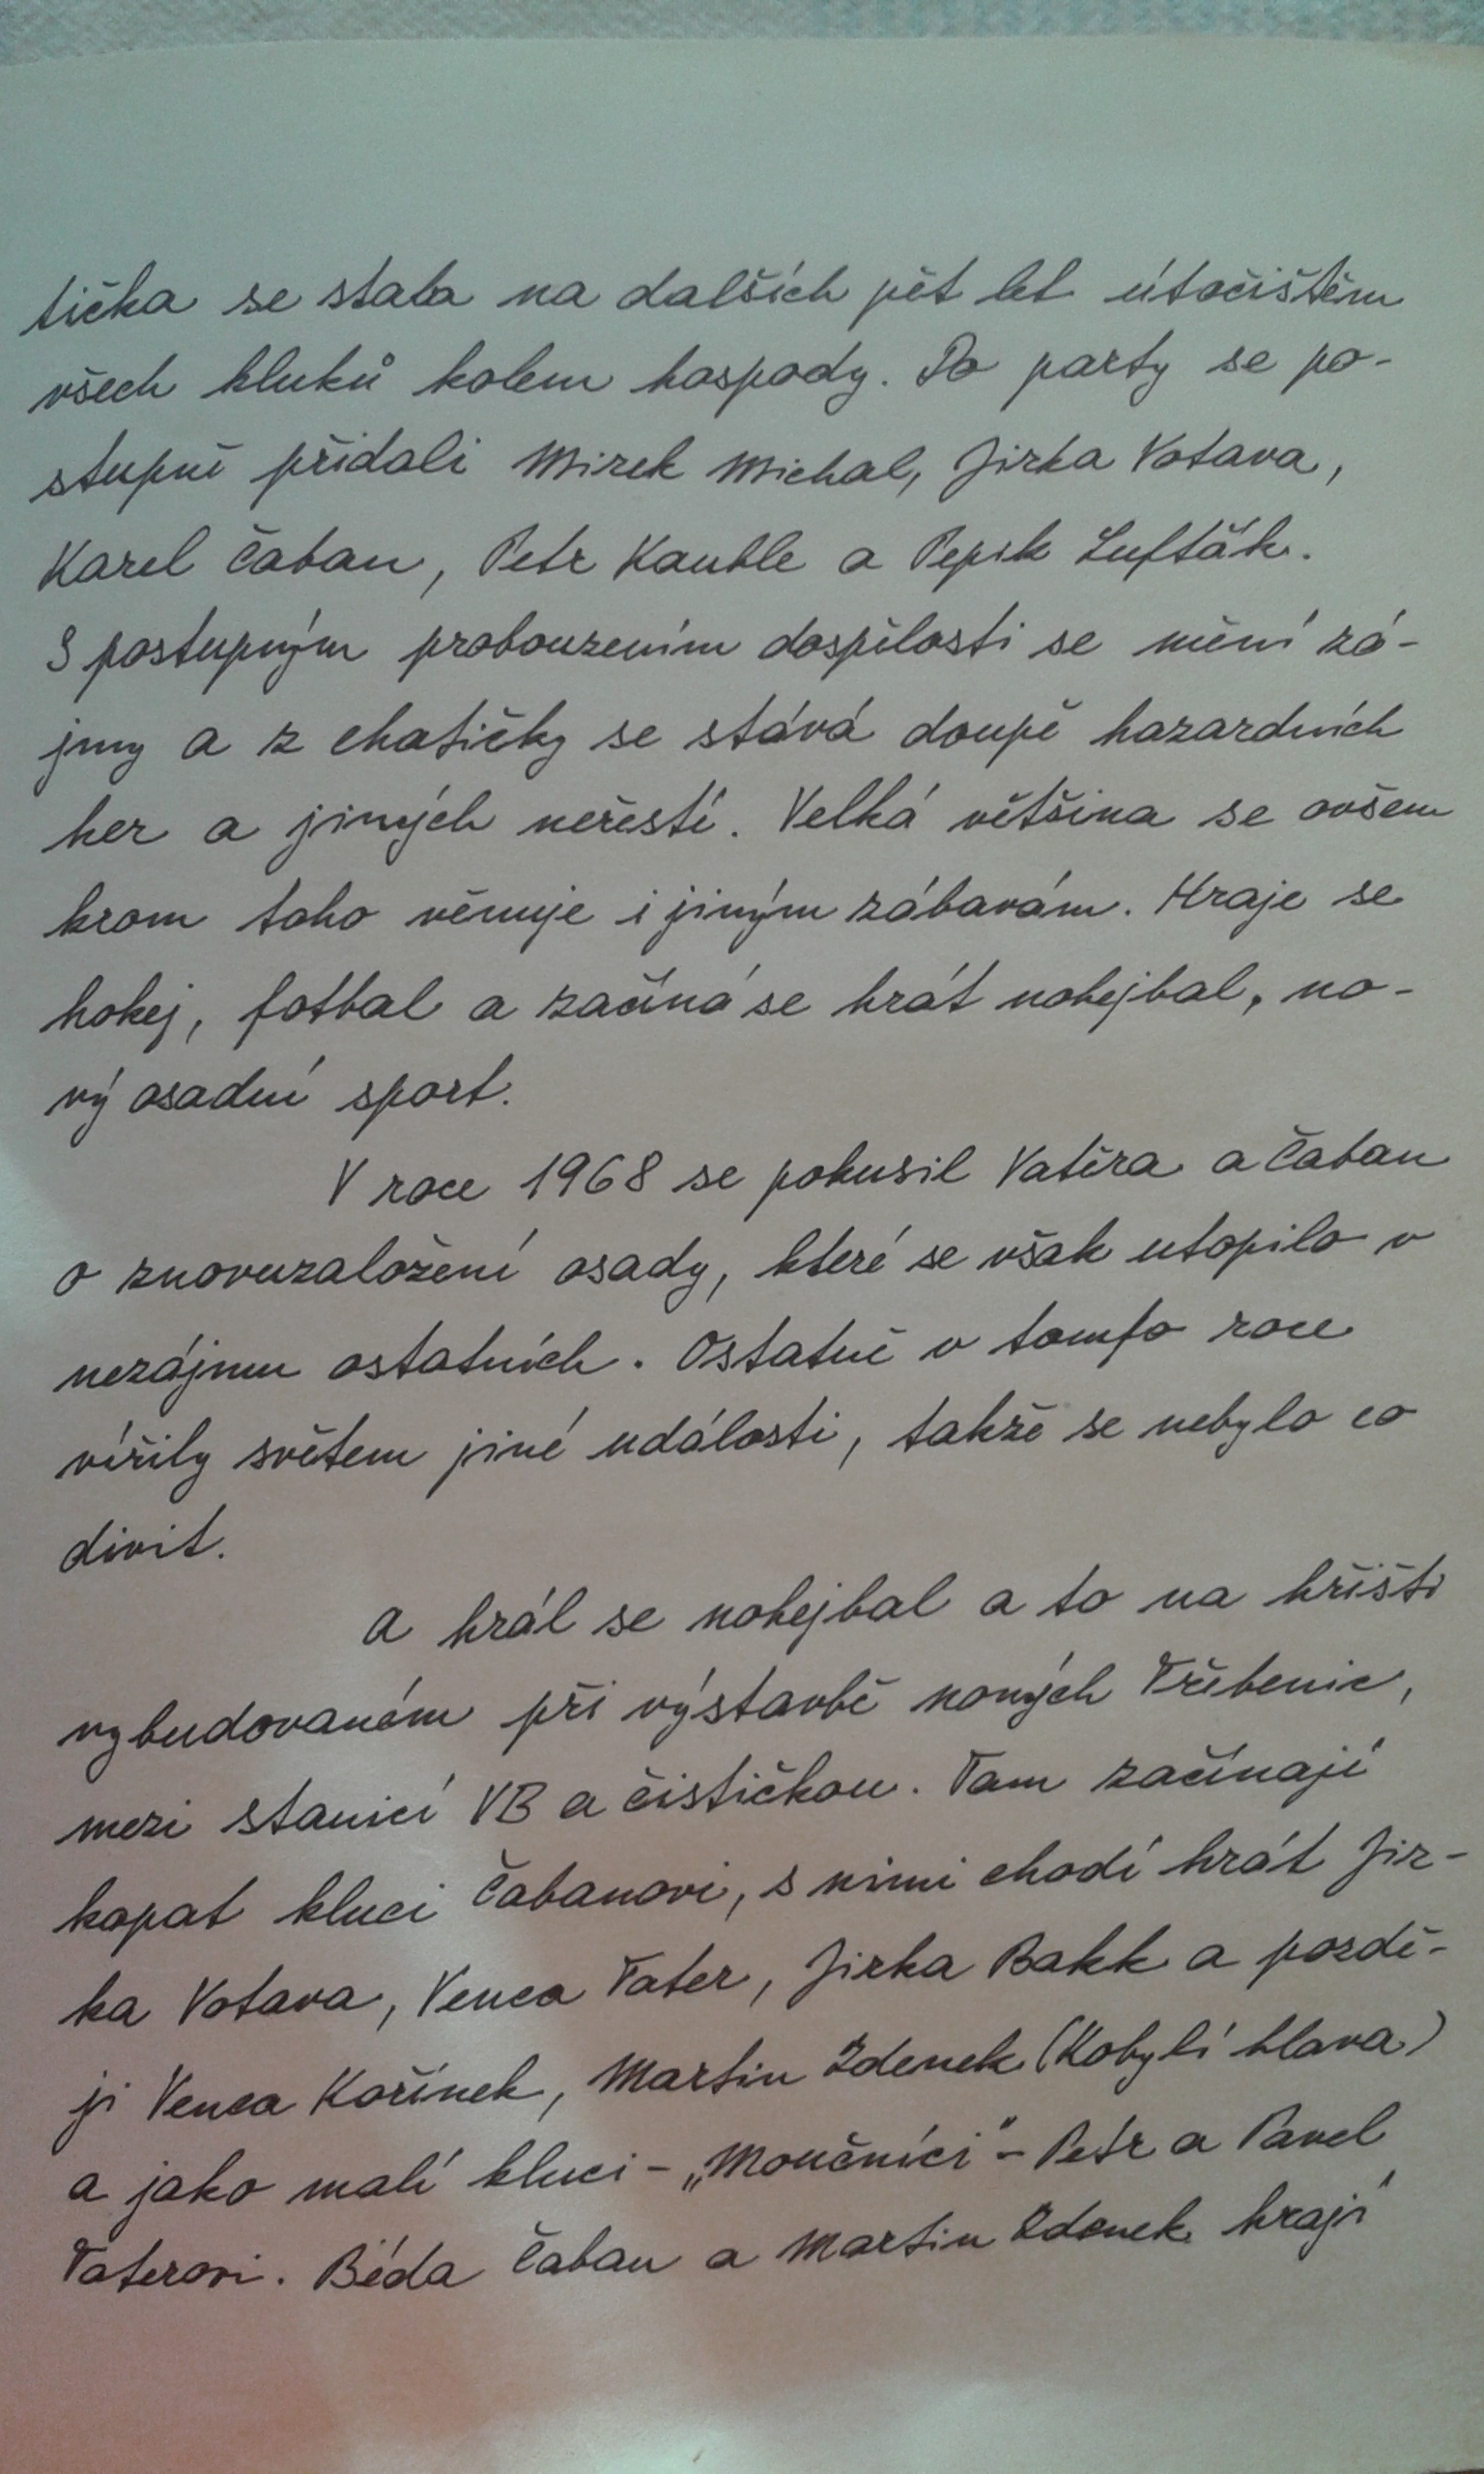 tička se stala na dalších pět let útočištěm
všech kluků kolem hospody. Do party se po-
stupně přidali Mirek Michal, Jirka Votava,
Karel Čaban, Petr Kauble a Pepik Lufťák.
S postupným probouzením dospělosti se mění zá-
jmy a z chatičky se stává doupě hazardních
her a jiných neřestí. Velká většina se ovšem
krom toho věnuje i jiným zábavám. Hraje se
hokej, fotbal a začíná se hrát nohejbal, no-
vý osadní sport.
V roce 1968 se pokusil Vatěra a Čaban
o znovuzaložení osady, které se však utopilo v
nezájmu ostatních. Ostatně v tomto roce
vířily světem jiné události, takže se nebylo co
divit.
A hrál se nohejbal a to na hřišti
vybudovaném při výstavbě nových Třebenic,
mezi stanicí VB a čističkou. Tam začínají
kopat kluci Čabanovi, s nimi chodí hrát Jir-
ka Votava, Venca Tater, Jirka Bakk a pozdě-
ji Venca Kořínek, Martin Zdenek (Kobylí hlava)
a jako malí kluci - „Moučníci" - Petr a Pavel
Taterovi. Béda Čaban a Martin Zdenek hrají